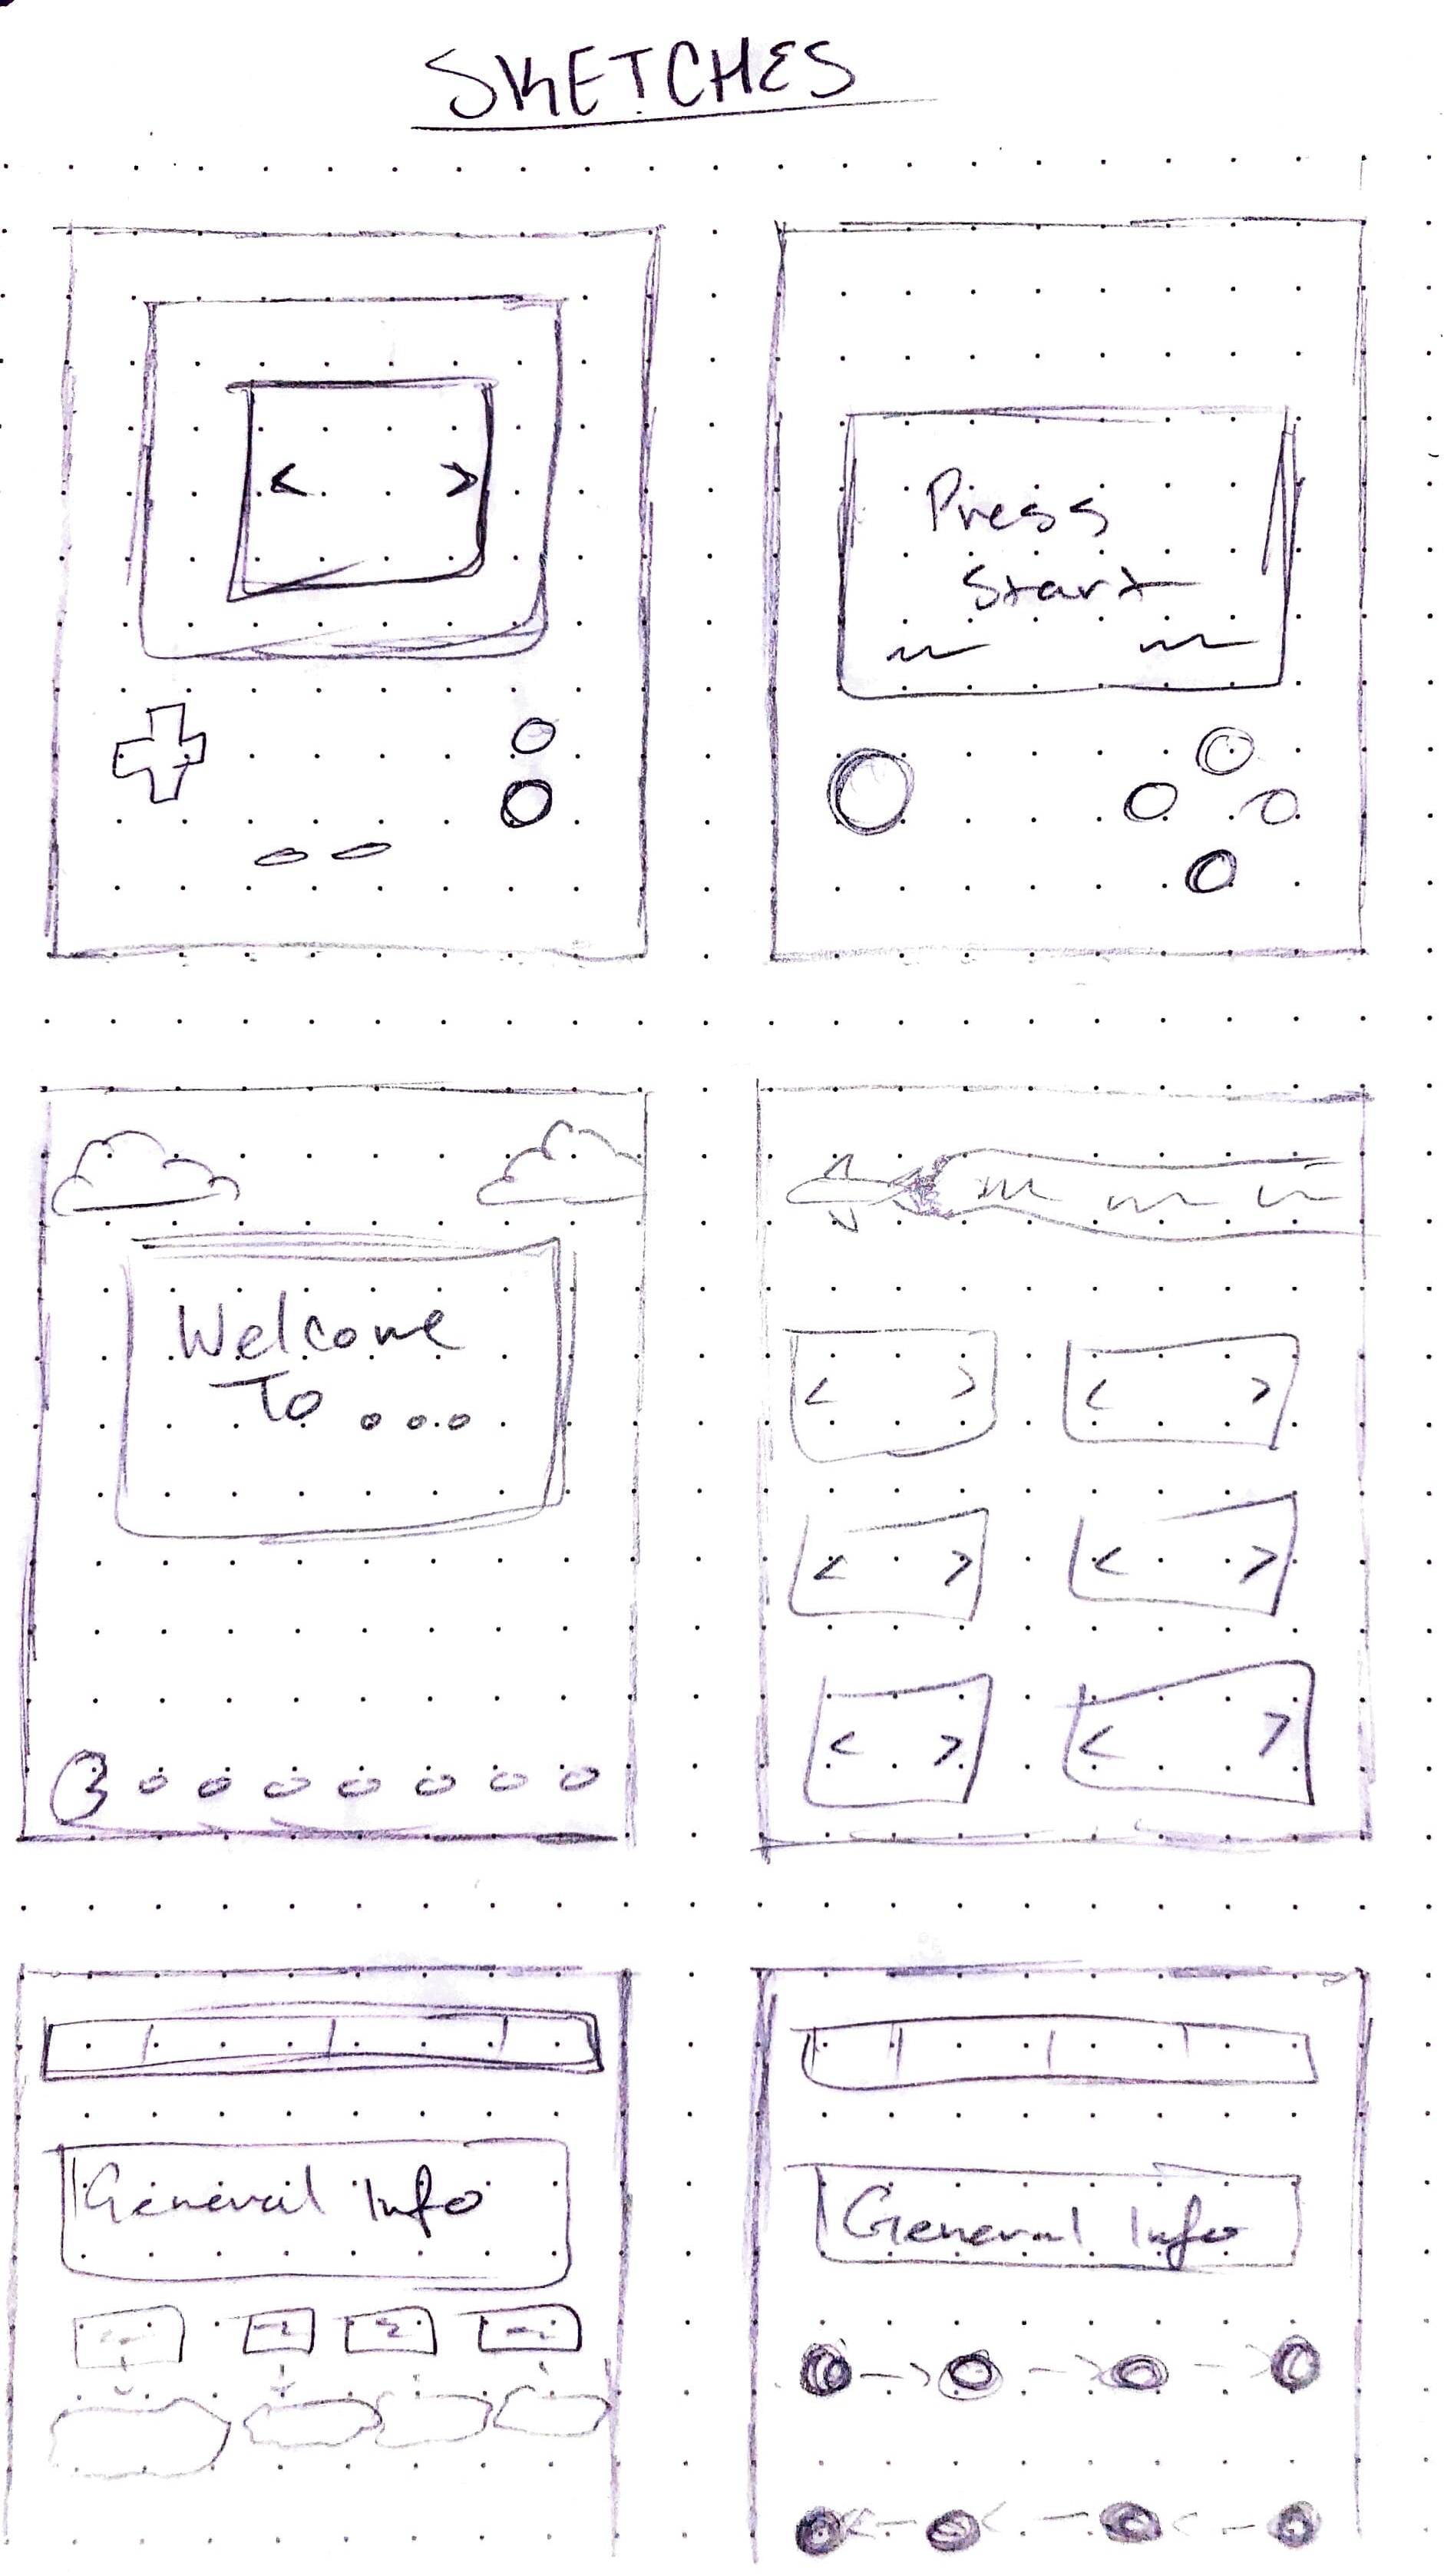 SKETCHES
< >
Press
Start
Welcome
To ...
< >
< >
< >
< >
< >
< >
General Info
General Info